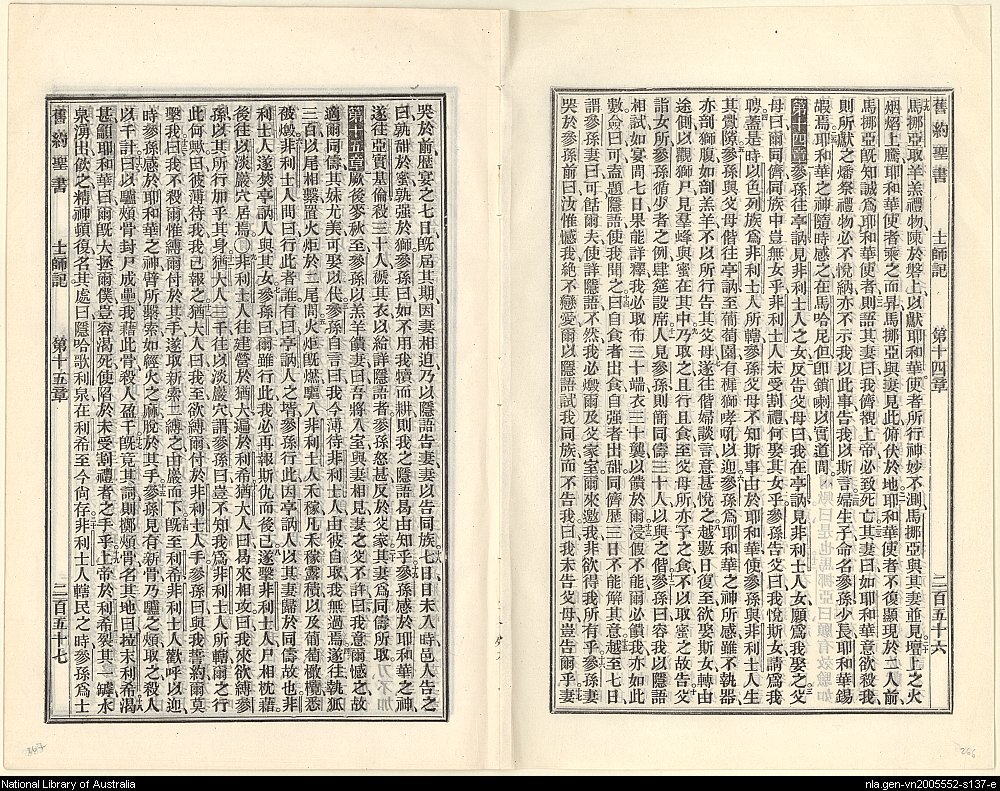 舊約聖書 士師記 第十四章 二百五十六
馬挪亞取羊羔禮物陳於磐上以獻耶和華使者所行神妙不測馬挪亞與其妻並見壇上之火
烟焰上騰耶和華使者乘之而昇馬挪亞與妻見此俯伏於地耶和華使者不復顯現於二人前
馬挪亞旣知誠爲耶和華使者則語其妻曰我儕覩上帝必致死亡其妻曰如耶和華意欲殺我
則所獻之燔祭禮物必不悅納亦不示我以此事告我以斯言婦生子命名參孫少長耶和華錫
嘏焉耶和華之神隨時感之在馬哈尼但卽鎖喇以實道間
第十四章參孫往亭訥見非利士人之女反告父母曰我在亭訥見非利士人女願爲我娶之父
母曰爾同儕同族中豈無女乎非利士人未受割禮何娶其女乎參孫告父曰我悅斯女請爲我
聘蓋是時以色列族爲非利士人所轄參孫父母不知斯事由於耶和華使參孫與非利士人生
其釁隙參孫與父母偕往亭訥至葡萄園有穉獅哮吼以迎參孫爲耶和華之神所感雖不執器
亦剖獅腹如剖羔羊不以所行告其父母遂往偕婦談言意甚悅之越數日復至欲娶斯女轉由
途側以觀獅尸見羣蜂與蜜在其中乃取之且行且食至父母所亦予之食不以取蜜之故告父
詣女所參孫循少者之例肆筵設席人見參孫則簡同儔三十人以與之偕參孫曰容我以隱語
相試如宴間七日果能詳釋我必取布三十端衣三十襲以饋於爾浸假不能爾必饋我亦如此
數僉曰可盍題隱語使我聞之曰自食者出食自强者出甜同儕歷三日不能解其意越至七日
謂參孫妻曰可餂爾夫使詳隱語不然我必燬爾及父家室爾來邀我非欲得我所有乎參孫妻
哭於參孫前曰汝惟憾我絕不戀愛爾以隱語試我同族而不告我曰我未告父母豈告爾乎妻
哭於前歷宴之七日旣屆其期因妻相迫乃以隱語告妻妻以告同族七日日未入時邑人告之
曰孰甜於蜜孰强於獅參孫曰如不用我犢而耕則我之隱語曷由知乎參孫感於耶和華之神
遂往亞實基倫殺三十人褫其衣以給詳隱語者參孫怒甚反於父家其妻爲同儔所取
第十五章厥後麥秋至參孫以羔羊饋妻曰吾將入室與妻相見妻之父不許曰我意爾憾之故
適爾同儔其妹尤美可娶以代參孫自言曰我今薄待非利士人由彼自取我無過焉遂往執狐
三百以尾相繫置火炬於二尾間火炬旣燃驅入非利士人禾稼凡禾稼露積以及葡萄橄欖悉
被燬非利士人問曰行此者誰有曰亭訥人之壻參孫行此因亭訥人以其妻歸於同儔故也非
利士人遂焚亭訥人與其女參孫曰爾雖行此我必再報斯仇而後已遂擊非利士人尸相枕藉
後往以淡巖穴居焉○非利士人往建營於猶大遍於利希猶大人曰曷來相攻曰我來欲縛參
孫以其所行加乎其身猶大人三千往以淡巖穴謂參孫曰豈不知我爲非利士人所轄爾之行
此何歟曰彼薄待我我已報之猶大人曰我至欲縛爾付於非利士人手參孫曰與我誓約爾莫
擊我曰我不殺爾惟縛爾付於其手遂取新索二縛之由巖而下旣至利希非利士人歡呼以迎
時參孫感於耶和華之神臂所縶索如經火之麻脫於其手參孫見有新骨乃驢之頰取之殺人
以千計曰以驢頰骨封尸成壘我藉此骨殺人盈千旣竟其詞則擲頰骨名其地曰拉末利希渴
甚籲耶和華曰爾旣大拯爾僕豈容渴死使陷於未受割禮者之手乎上帝於利希裂其一罅水
泉湧出飮之精神頓復名其處曰隱哈歌利泉在利希至今尙存非利士人轄民之時參孫爲士
舊約聖書 士師記 第十五章 二百五十七
267
266
National Library of Australia
nla.gen-vn2005552-s137-e